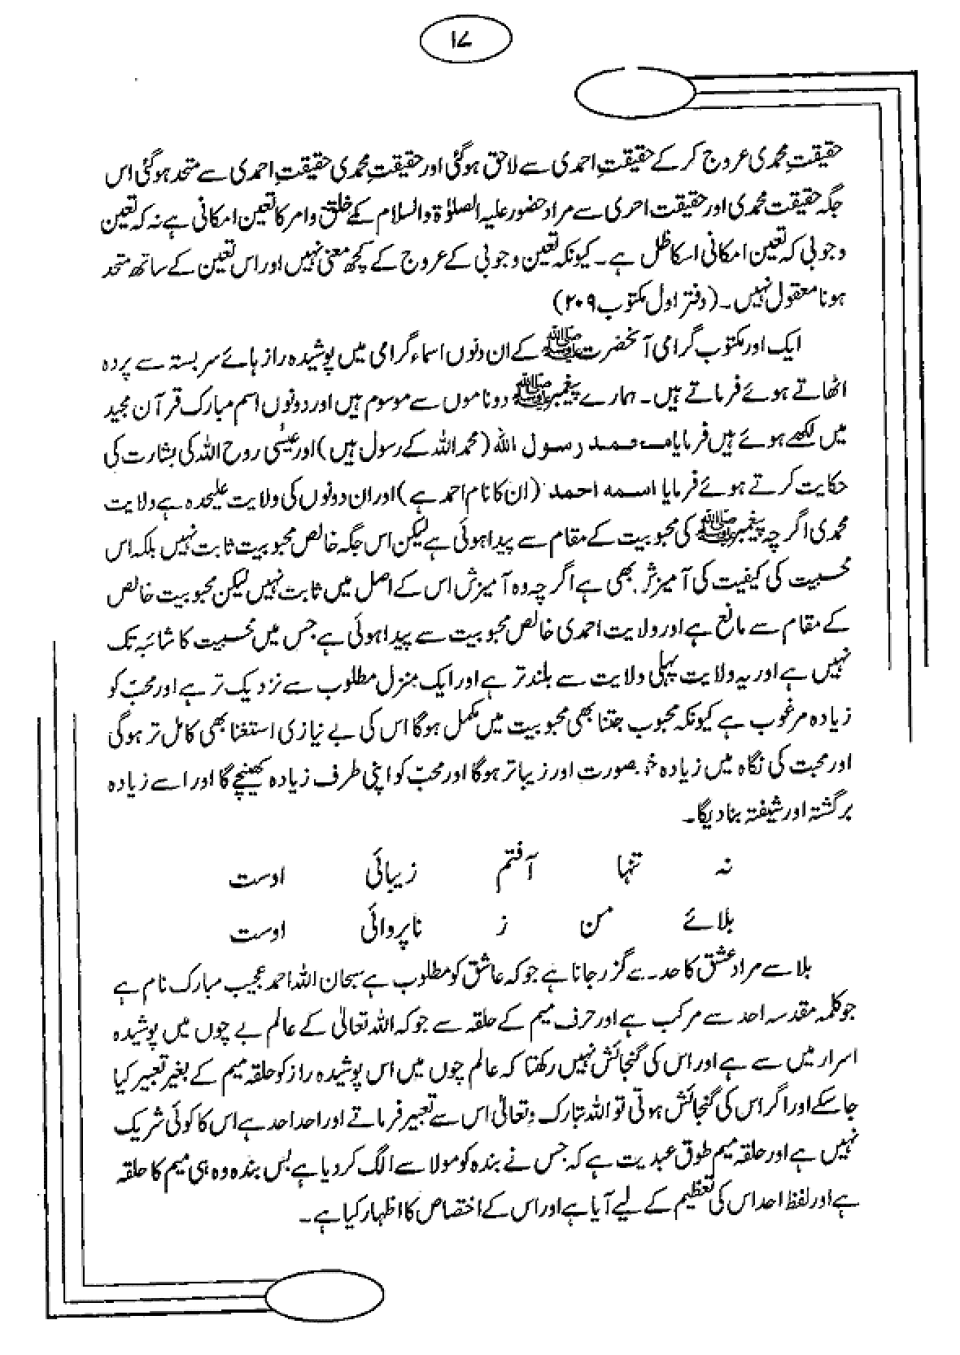 ۱۷
حقیقتِ محمدی عروج کر کے حقیقتِ احمدی سے لاحق ہوگئی اور حقیقتِ محمدی حقیقتِ احمدی سے متحد ہوگئی اس
جگہ حقیقت محمدی اور حقیقت احمدی سے مراد حضور علیہ الصلوٰۃ والسلام کے خلق و امر کا تعین امکانی ہے نہ کہ تعین
وجوبی کہ تعین امکانی اسکا ظل ہے۔ کیونکہ تعین وجوبی کے عروج کے کچھ معنی نہیں اور اس تعین کے ساتھ متحد
ہونا معقول نہیں۔ (دفتر اول مکتوب ۲۰۹)
ایک اور مکتوب گرامی آنحضرت ﷺ کے ان دونوں اسماء گرامی میں پوشیدہ راز ہائے سربستہ سے پردہ
اٹھاتے ہوئے فرماتے ہیں۔ ہمارے پیغمبر ﷺ دو ناموں سے موسوم ہیں اور دونوں اسم مبارک قرآن مجید
میں لکھے ہوئے ہیں فرمایا محمد رسول اللہ (محمد اللہ کے رسول ہیں) اور عیسٰی روح اللہ کی بشارت کی
حکایت کرتے ہوئے فرمایا اسمہ احمد (ان کا نام احمد ہے) اور ان دونوں کی ولایت علیحدہ ہے ولایت
محمدی اگر چہ پیغمبر ﷺ کی محبوبیت کے مقام سے پیدا ہوئی ہے لیکن اس جگہ خالص محبوبیت ثابت نہیں بلکہ اس
محسبیت کی کیفیت کی آمیزش بھی ہے اگر چہ وہ آمیزش اس کے اصل میں ثابت نہیں لیکن محبوبیت خالص
کے مقام سے مانع ہے اور ولایت احمدی خالص محبوبیت سے پیدا ہوئی ہے جس میں محسبیت کا شائبہ تک
نہیں ہے اور یہ ولایت پہلی ولایت سے بلند تر ہے اور ایک منزل مطلوب سے نزدیک تر ہے اور محبّ کو
زیادہ مرغوب ہے کیونکہ محبوب جتنا بھی محبوبیت میں مکمل ہوگا اس کی بے نیازی استغنا بھی کامل تر ہوگی
اور محبت کی نگاہ میں زیادہ خوبصورت اور زیبا تر ہوگا اور محبّ کو اپنی طرف زیادہ کھینچے گا اور اسے زیادہ
برگشتہ اور شیفتہ بنا دیگا۔
نہ تنہا آفتم زیبائی اوست
بلائے من ز ناپروائی اوست
بلا سے مراد عشق کا حد سے گزر جانا ہے جو کہ عاشق کو مطلوب ہے سبحان اللہ احمد عجیب مبارک نام ہے
جو کلمہ مقدسہ احد سے مرکب ہے اور حرف میم کے حلقہ سے جو کہ اللہ تعالیٰ کے عالم بے چوں میں پوشیدہ
اسرار میں سے ہے اور اس کی گنجائش نہیں رکھتا کہ عالم چوں میں اس پوشیدہ راز کو حلقہ میم کے بغیر تعبیر کیا
جاسکے اور اگر اس کی گنجائش ہوتی تو اللہ تبارک وتعالیٰ اس سے تعبیر فرماتے اور احد احد ہے اس کا کوئی شریک
نہیں ہے اور حلقہ میم طوق عبدیت ہے کہ جس نے بندہ کو مولا سے الگ کر دیا ہے بس بندہ وہ ہی میم کا حلقہ
ہے اور لفظ احد اس کی تعظیم کے لیے آیا ہے اور اس کے اختصاص کا اظہار کیا ہے۔